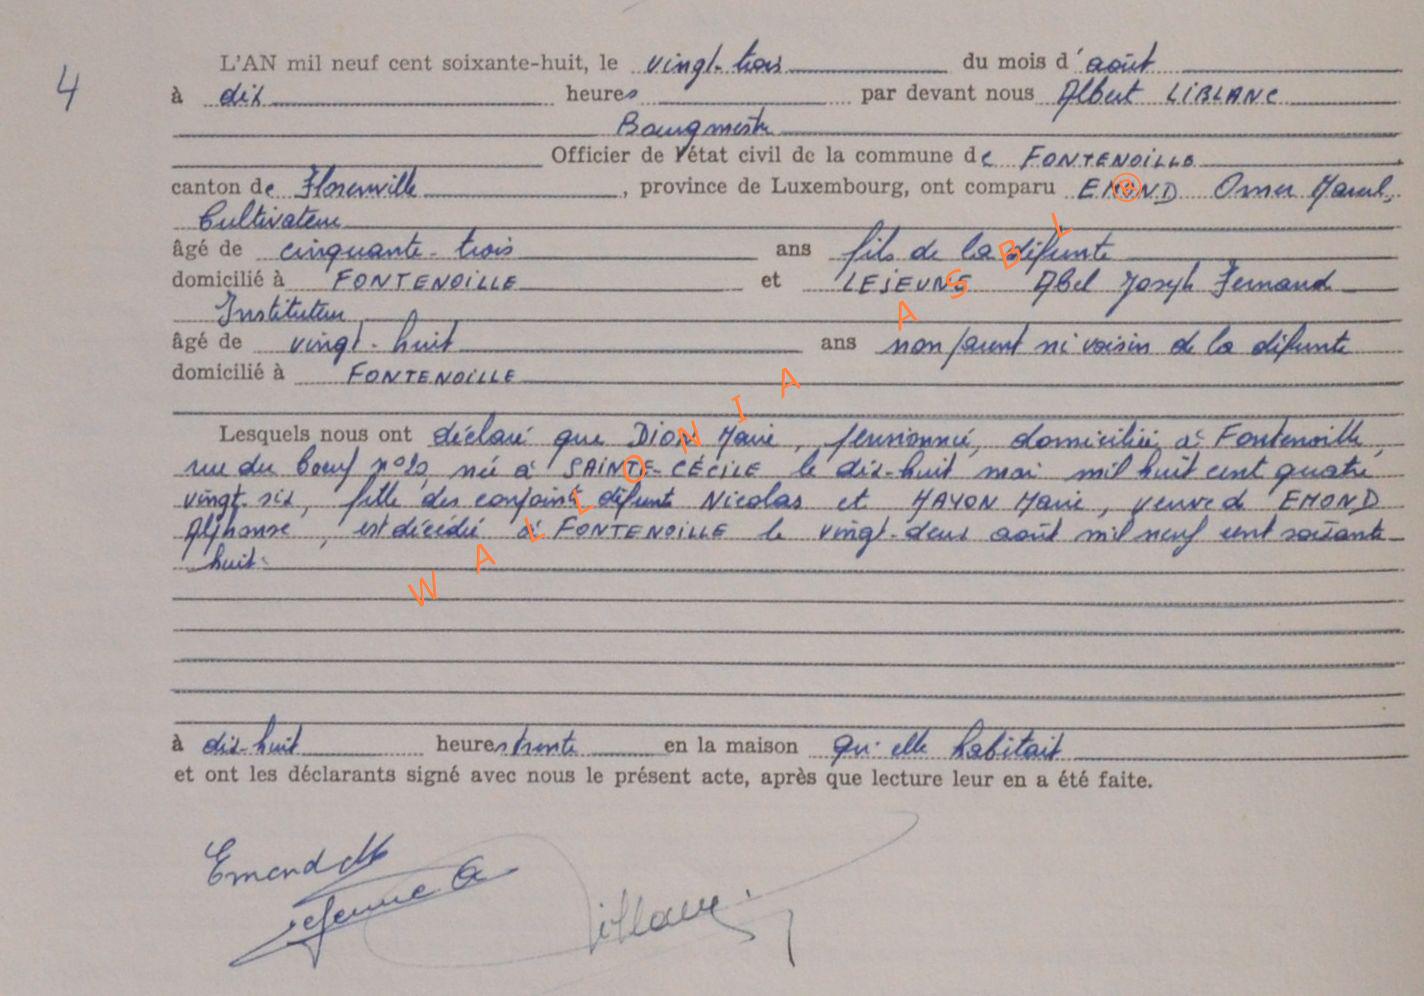 4
L'AN mil neuf cent soixante-huit, le vingt-trois du mois d'août
à dix heures par devant nous Albert LIBLANC
Bourgmestre
Officier de l'état civil de la commune de FONTENOILLE
canton de Florenville, province de Luxembourg, ont comparu EMOND Omer Marcel,
Cultivateur
âgé de cinquante-trois ans fils de la défunte
domicilié à FONTENOILLE et LEJEUNE Abel Joseph Fernand
Instituteur
âgé de vingt-huit ans non parent ni voisin de la défunte
domicilié à FONTENOILLE
Lesquels nous ont déclaré que DION Marie, pensionnée, domiciliée à Fontenoille,
rue du boeuf n°20, née à SAINTE-CÉCILE le dix-huit mai mil huit cent quatre
vingt-six, fille des conjoints défunts Nicolas et HAYON Marie, veuve d EMOND
Alphonse, est décédée à FONTENOILLE le vingt-deux août mil neuf cent soixante
huit.
à dix-huit heures trente en la maison qu'elle habitait
et ont les déclarants signé avec nous le présent acte, après que lecture leur en a été faite.
Emond
Lejeune A
WALLONIA ASBL ®